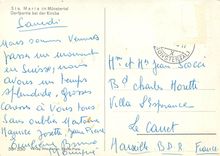 Sta. Maria im Münstertal
Dorfpartie bei der Kirche
Samedi
Nous sommes venus
passer un moment
en Suisse, nous
avons un temps
splendide, grosses
caresses à Vous tous
Sans oublier
Maurice Josette Jean Pierre
Mr et Mme Jean Scocci
Bd Charles Moretti
Villa L'Espérance
Le Canet
Marseille B.P.R. France